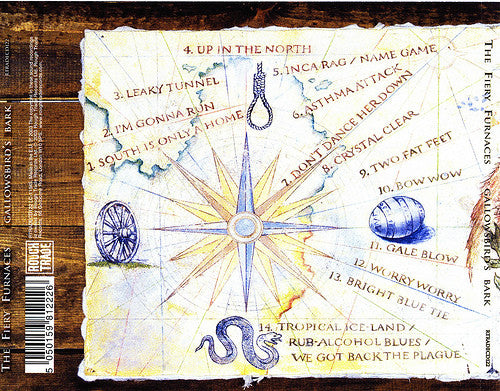 4. UP IN THE NORTH
5. INCA RAG / NAME GAME
3. LEAKY TUNNEL
6. ASTHMA ATTACK
2. I'M GONNA RUN
7. DON'T DANCE HER DOWN
1. SOUTH IS ONLY A HOME
8. CRYSTAL CLEAR
9. TWO FAT FEET
10. BOW WOW
11. GALE BLOW
12. WORRY WORRY
13. BRIGHT BLUE TIE
14. TROPICAL ICE-LAND /
RUB-ALCOHOL BLUES /
WE GOT BACK THE PLAGUE
THE FIERY FURNACES GALLOWSBIRD'S BARK
ROUGH
TRADE
5 050159 812226
THE FIERY FURNACES GALLOWSBIRD'S BARK